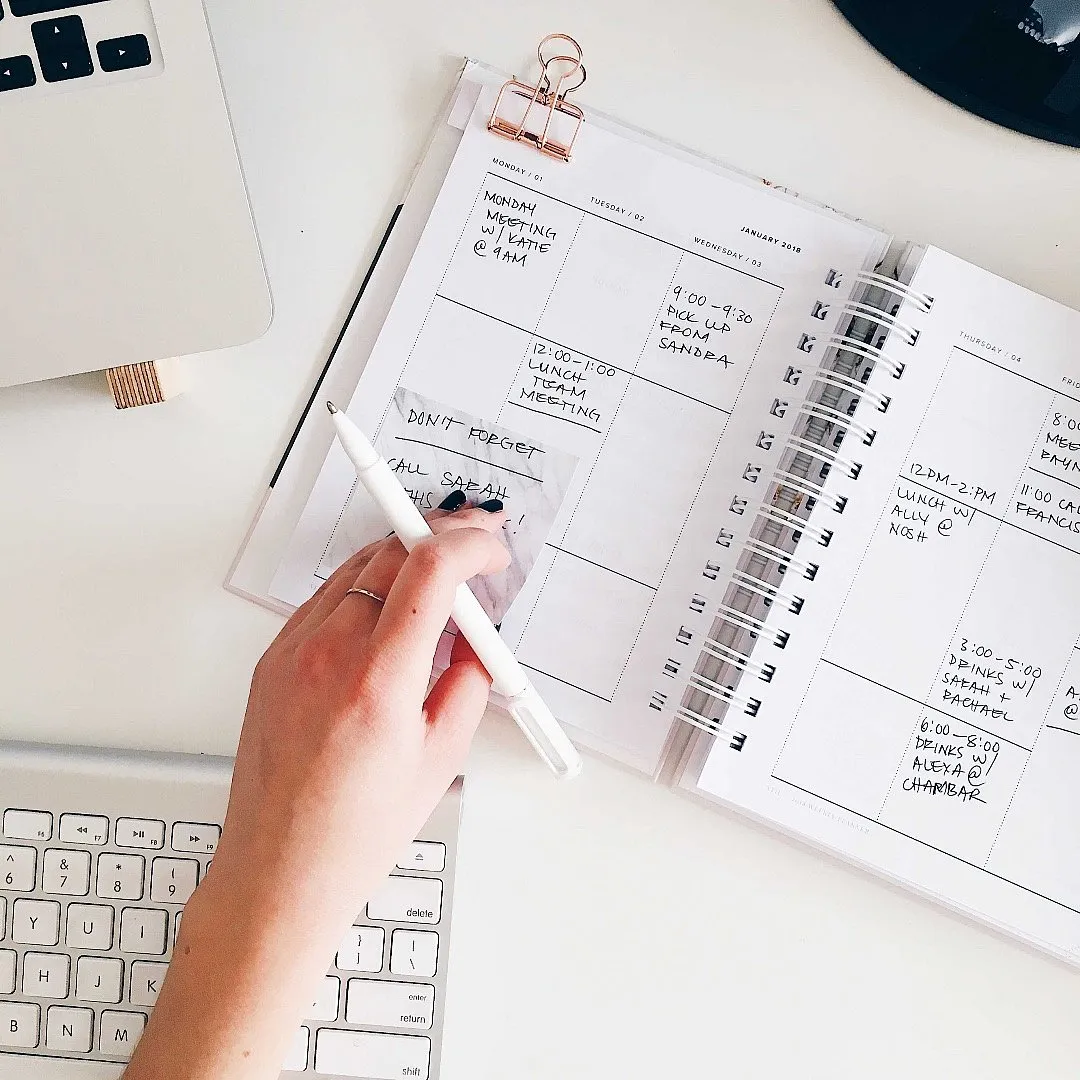 JANUARY 2018
MONDAY / 01
MONDAY
MEETING
W/ KATIE
@ 9AM
DON'T FORGET
CALL SARAH
THIS
!
TUESDAY / 02
12:00-1:00
LUNCH
TEAM
MEETING
WEDNESDAY / 03
9:00-9:30
PICK UP
FROM
SANDRA
THURSDAY / 04
12PM-2:PM
LUNCH W/
ALLY @
NOSH
8:00
11:00
3:00-5:00
DRINKS W/
SARAH +
RACHAEL
6:00-8:00
DRINKS W/
ALEXA @
CHAMBAR
WEEKLY PLANNER
F6
F7
F8
F9
^
6
&
7
*
8
(
9
delete
Y
U
I
}
]
|
\
H
J
K
enter
return
B
N
M
shift